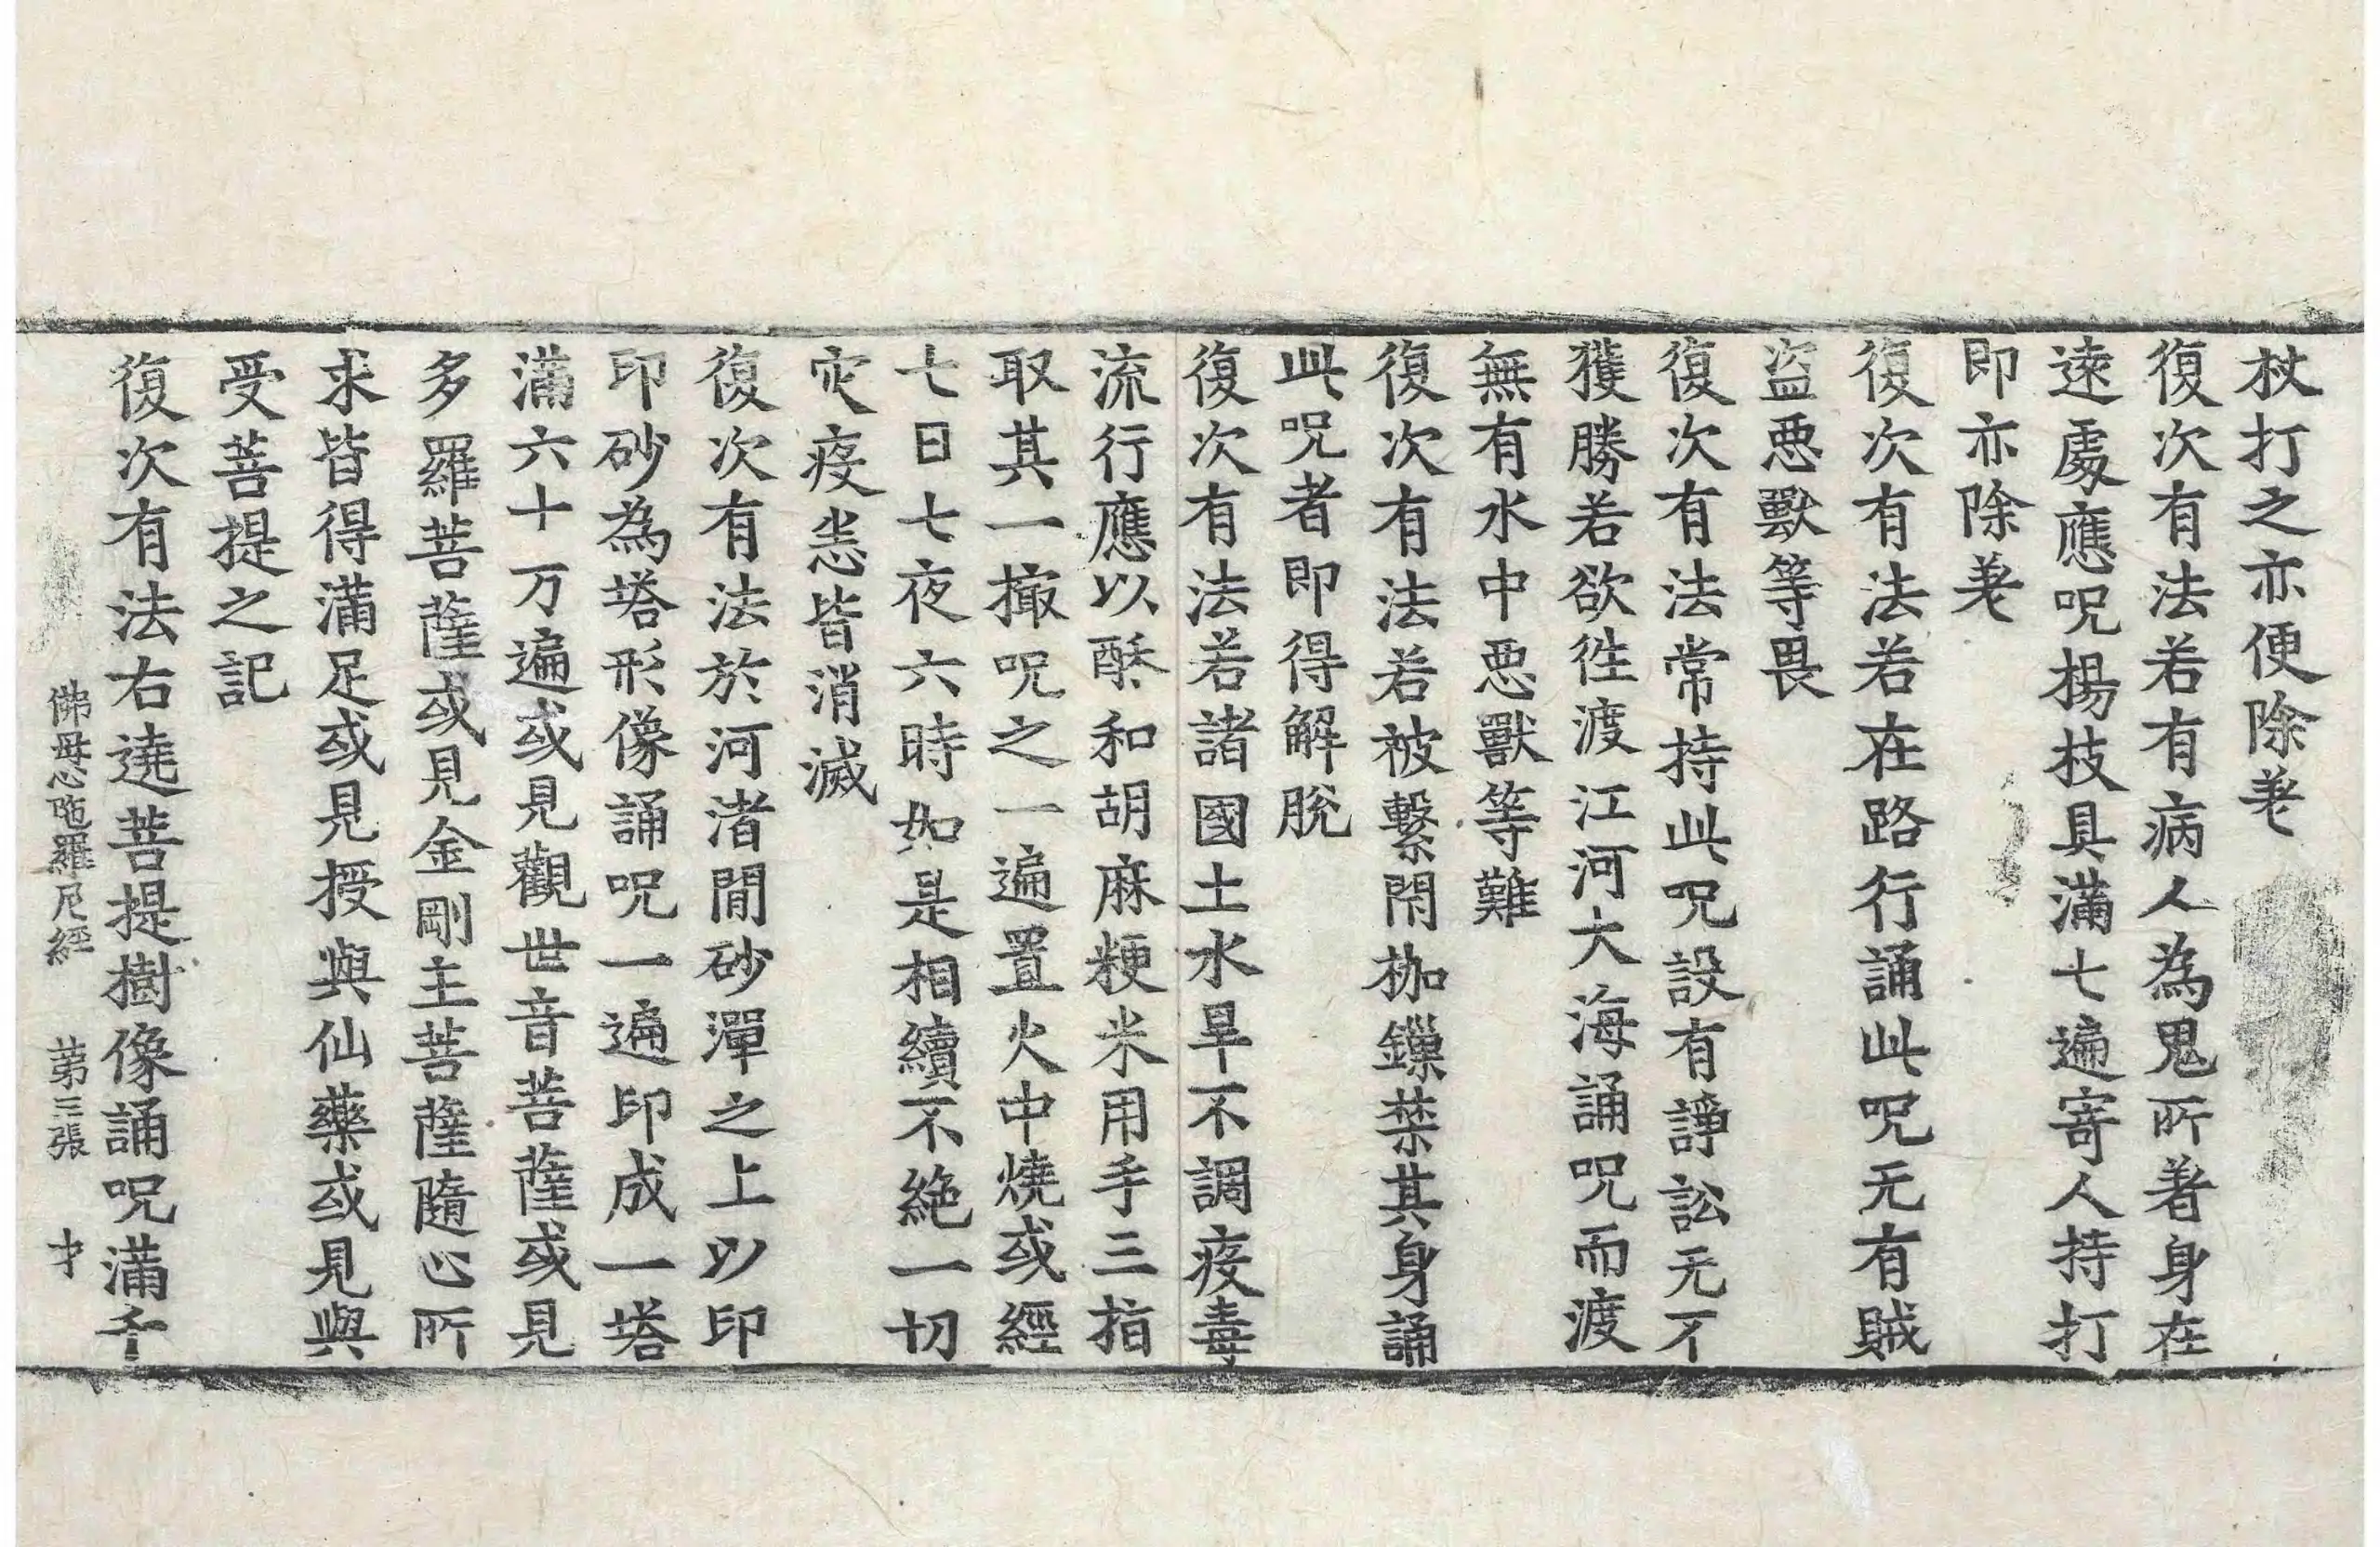 杖打之亦便除差
復次有法若有病人為鬼所著身在
遠處應呪楊枝具滿七遍寄人持打
即亦除差
復次有法若在路行誦此呪无有賊
盜惡獸等畏
復次有法常持此呪設有諍訟无不
獲勝若欲往渡江河大海誦呪而渡
無有水中惡獸等難
復次有法若被繫閉枷鏁禁其身誦
此呪者即得解脫
復次有法若諸國土水旱不調疫毒
流行應以酥和胡麻粳米用手三指
取其一撮呪之一遍置火中燒或經
七日七夜六時如是相續不絶一切
灾疫恙皆消滅
復次有法於河渚閒砂潬之上以印
印砂為塔形像誦呪一遍印成一塔
滿六十万遍或見觀世音菩薩或見
多羅菩薩或見金剛主菩薩隨心所
求皆得滿足或見授與仙藥或見與
受菩提之記
復次有法右遶菩提樹像誦呪滿千
佛母心陁羅尼經 第三張 才